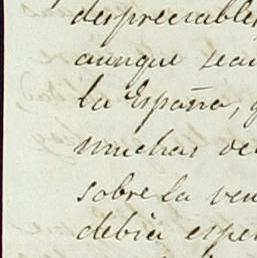 despreciables
aunque sean
la España, q
muchas ve
sobre la ven
debia espe